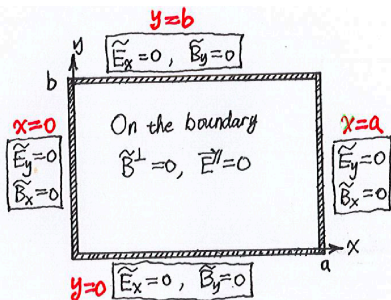 y=b
y
Ẽx=0 , B̃y=0
b
x=0
Ẽy=0
B̃x=0
On the boundary
B̃⊥=0, E⃗∥=0
x=a
Ẽy=0
B̃x=0
x
a
y=0
Ẽx=0 , B̃y=0